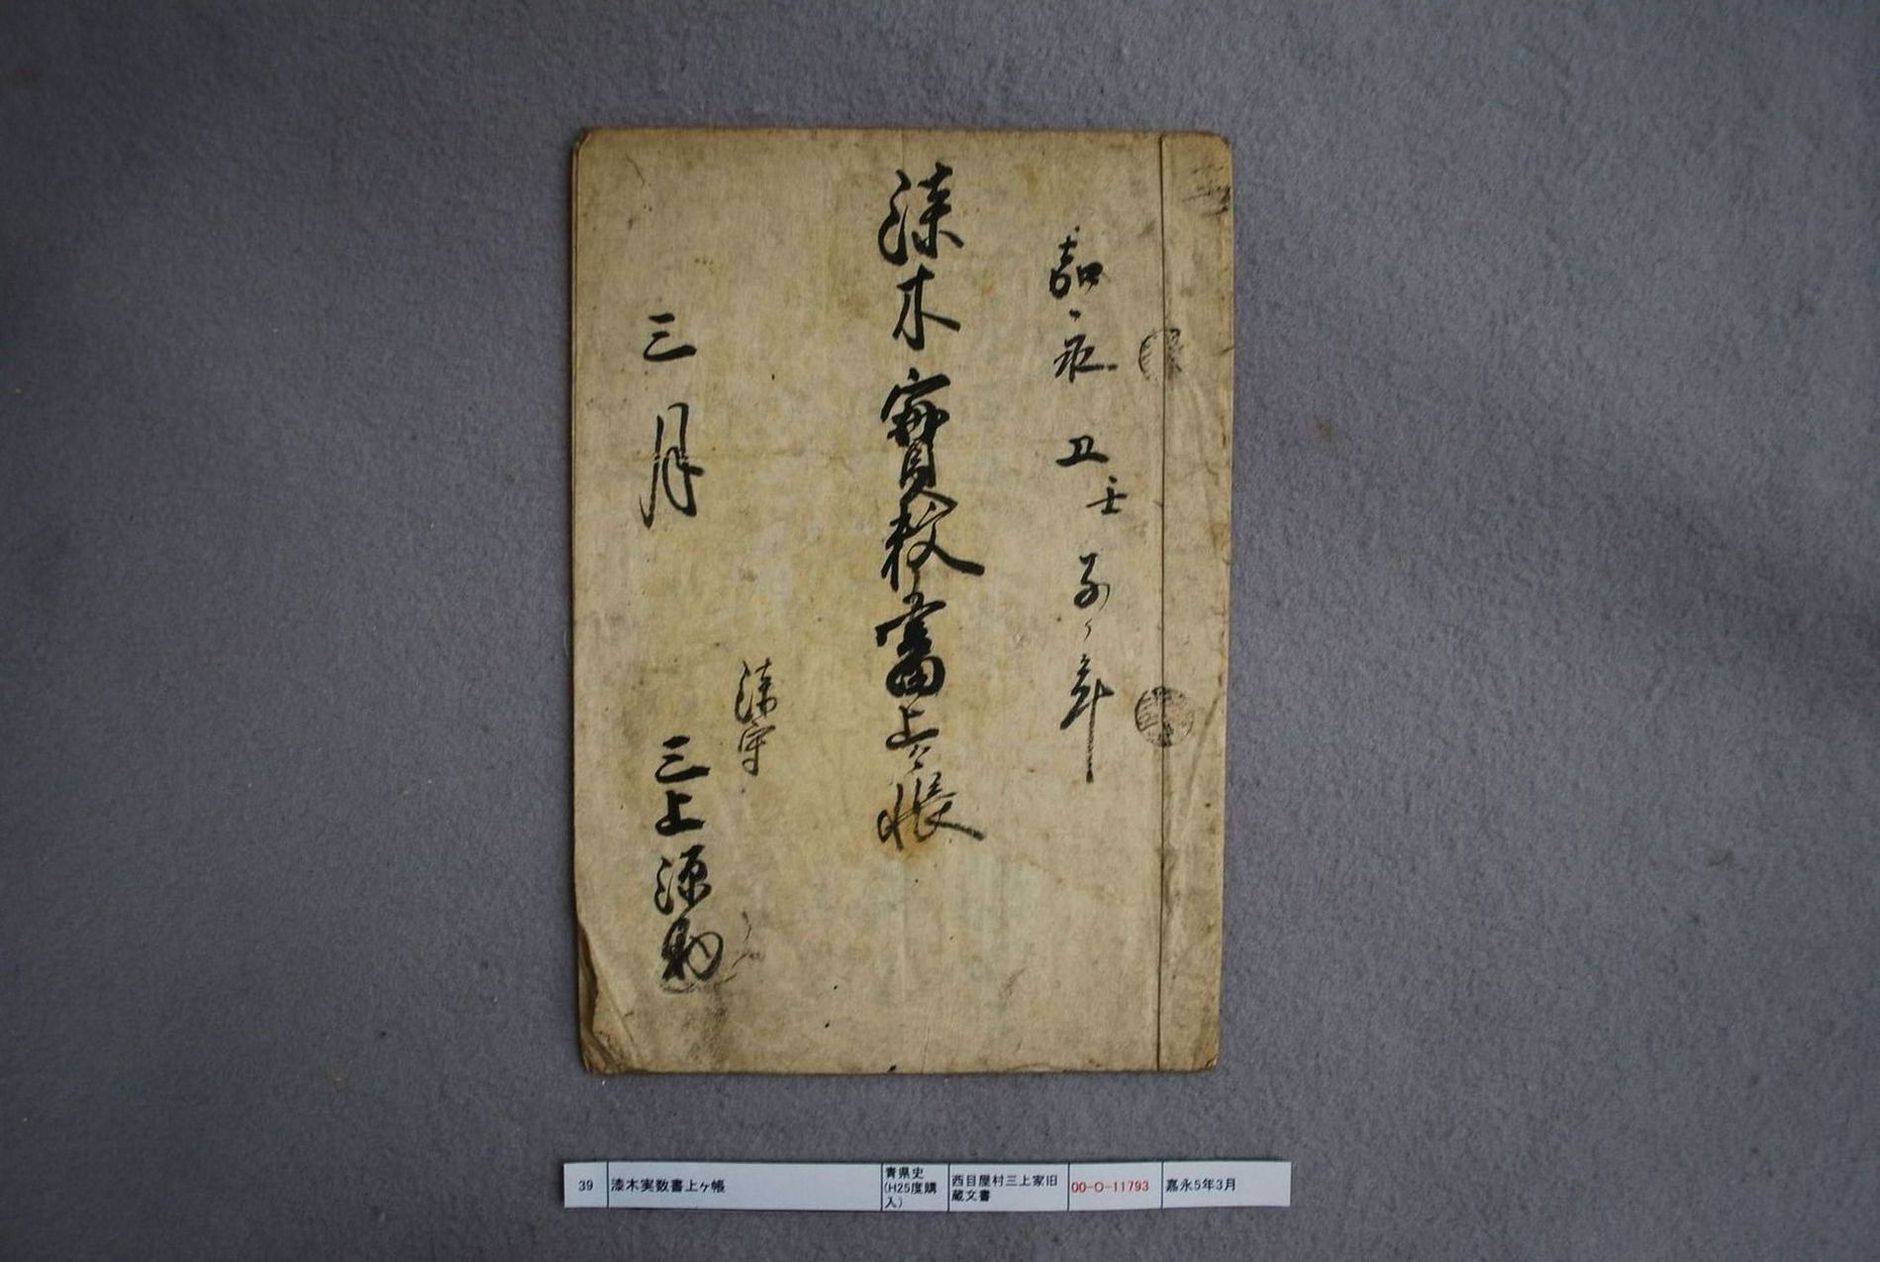 嘉永五壬子ノ年
漆木實数書上ヶ帳
三月
漆守
三上源助
39
漆木実数書上ヶ帳
青県史
(H25度購
入)
西目屋村三上家旧
蔵文書
00-O-11793
嘉永5年3月